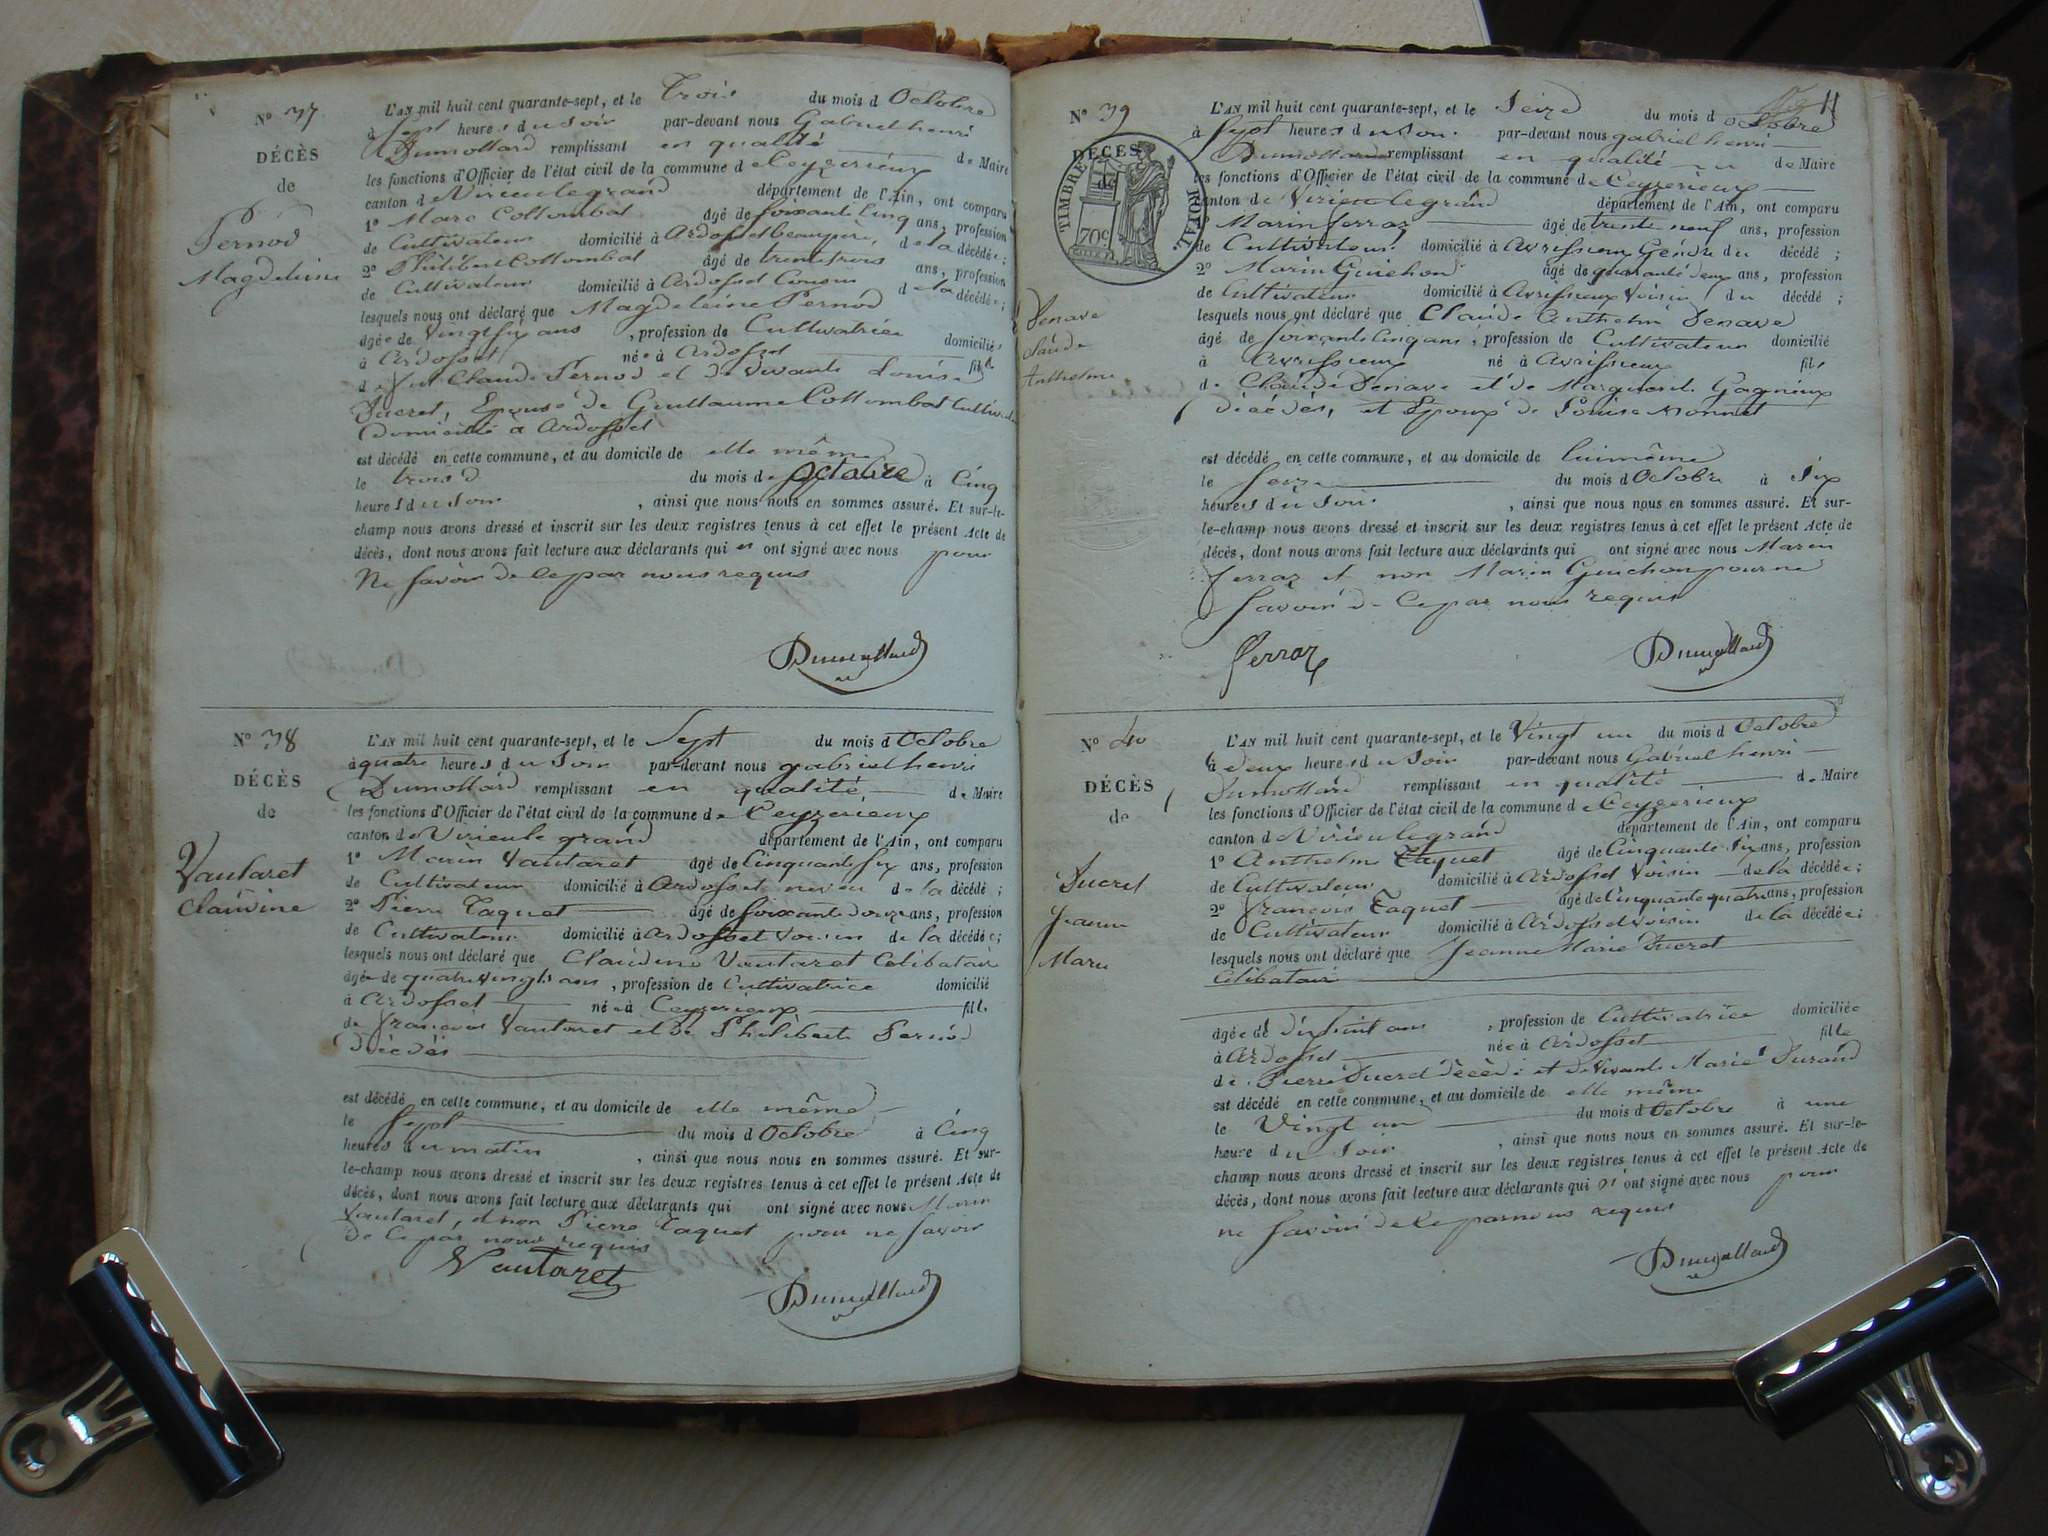 N° 37
DÉCÈS
de
Pernod
Magdeleine
L'AN mil huit cent quarante-sept, et le Trois du mois d Octobre
à Sept heures du Soir par-devant nous Gabriel henri
Dumollard remplissant en qualité de Maire
les fonctions d'Officier de l'état civil de la commune de Ceyzerieux
canton de Virieulegrand département de l'Ain, ont comparu
1° Marc Collombat âgé de soixante Cinq ans, profession
de Cultivateur domicilié à Ardosset beaupère, de la décédée ;
2° Philibert Collombat âgé de trentetrois ans, profession
de Cultivateur domicilié à Ardosset Cousin de la décédée ;
lesquels nous ont déclaré que Magdeleine Pernod
âgée de Vingt six ans , profession de Cultivatrice domicilié
à Ardosset née à Ardosset fille
de feu Claude Pernod et de Vivante Louise
Ducret, Epouse de Guillaume Collombat
Domicilié à Ardosset
est décédé en cette commune, et au domicile de elle même
le trois du mois de Octobre à Cinq
heures du soir , ainsi que nous nous en sommes assuré. Et sur-le-
champ nous avons dressé et inscrit sur les deux registres tenus à cet effet le présent Acte de
décès, dont nous avons fait lecture aux déclarants qui ont signé avec nous pour
Ne savoir de ce par nous requis
Dumollard
N° 38
DÉCÈS
de
Vautaret
Claudine
L'AN mil huit cent quarante-sept, et le Sept du mois d Octobre
à quatre heures du Soir par-devant nous gabriel henri
Dumollard remplissant en qualité de Maire
les fonctions d'Officier de l'état civil de la commune de Ceyzerieux
canton de Virieule grand département de l'Ain, ont comparu
1° Marin Vautaret âgé de Cinquante six ans, profession
de Cultivateur domicilié à Ardosset neveu de la décédé ;
2° Pierre Taquet âgé de soixante douze ans, profession
de Cultivateur domicilié à Ardosset Voisin de la décédée ;
lesquels nous ont déclaré que Claudine Vautaret Celibataire
âgée de quatre vingts ans , profession de Cultivatrice domicilié
à Ardosset née à Ceyzerieux fille
de françois Vautaret et de Philiberte Pernod
Décédés
est décédé en cette commune, et au domicile de elle même
le Sept du mois d Octobre à Cinq
heures du matin , ainsi que nous nous en sommes assuré. Et sur-
le-champ nous avons dressé et inscrit sur les deux registres tenus à cet effet le présent Acte de
décès, dont nous avons fait lecture aux déclarants qui ont signé avec nous Marin
Vautaret, et non Pierre Taquet pour ne savoir
de ce par nous requis
Vautaret
Dumollard
11
N° 39
DÉCÈS
de
TIMBRE ROYAL
70c
Denave
Claude
Anthelme
L'AN mil huit cent quarante-sept, et le Seize du mois d octobre
à Sept heures du soir par-devant nous gabriel henri
Dumollard remplissant en qualité de Maire
les fonctions d'Officier de l'état civil de la commune de Ceyzerieux
canton de Virieu le grand département de l'Ain, ont comparu
1° Marin ferraz âgé de trente neuf ans, profession
de Cultivateur domicilié à Avrissieux Gendre du décédé ;
2° Marin Guichon âgé de quarante deux ans, profession
de Cultivateur domicilié à Avrissieux Voisin du décédé ;
lesquels nous ont déclaré que Claude Anthelme Denave
âgé de soixante Cinq ans , profession de Cultivateur domicilié
à Avrissieux né à Avrissieux fils
de Claude Denave et de Marguerite Gagnieux
décédés, et Epoux de Louise Monnet
est décédé en cette commune, et au domicile de lui même
le Seize du mois d Octobre à Six
heures du Soir , ainsi que nous nous en sommes assuré. Et sur-
le-champ nous avons dressé et inscrit sur les deux registres tenus à cet effet le présent Acte de
décès, dont nous avons fait lecture aux déclarants qui ont signé avec nous Marin
ferraz et non Marin Guichon pour ne
savoir de ce par nous requis
ferraz
Dumollard
N° 40
DÉCÈS
de
Ducret
Jeanne
Marie
L'AN mil huit cent quarante-sept, et le Vingt un du mois d Octobre
à deux heures du Soir par-devant nous Gabriel henri
Dumollard remplissant en qualité de Maire
les fonctions d'Officier de l'état civil de la commune de Ceyzerieux
canton de Virieulegrand département de l'Ain, ont comparu
1° Anthelme Taquet âgé de Cinquante Six ans, profession
de Cultivateur domicilié à Ardosset Voisin de la décédée ;
2° françois Taquet âgé de Cinquante quatre ans, profession
de Cultivateur domicilié à Ardosset Voisin de la décédée ;
lesquels nous ont déclaré que Jeanne Marie Ducret
Celibataire
âgée de dix huit ans , profession de Cultivatrice domiciliée
à Ardosset née à Ardosset fille
de Pierre Ducret décédé et de Vivante Marie Durand
est décédé en cette commune, et au domicile de elle même
le Vingt un du mois d Octobre à une
heure du Soir , ainsi que nous nous en sommes assuré. Et sur-le-
champ nous avons dressé et inscrit sur les deux registres tenus à cet effet le présent Acte de
décès, dont nous avons fait lecture aux déclarants qui ont signé avec nous pour
ne savoir de ce par nous requis
Dumollard